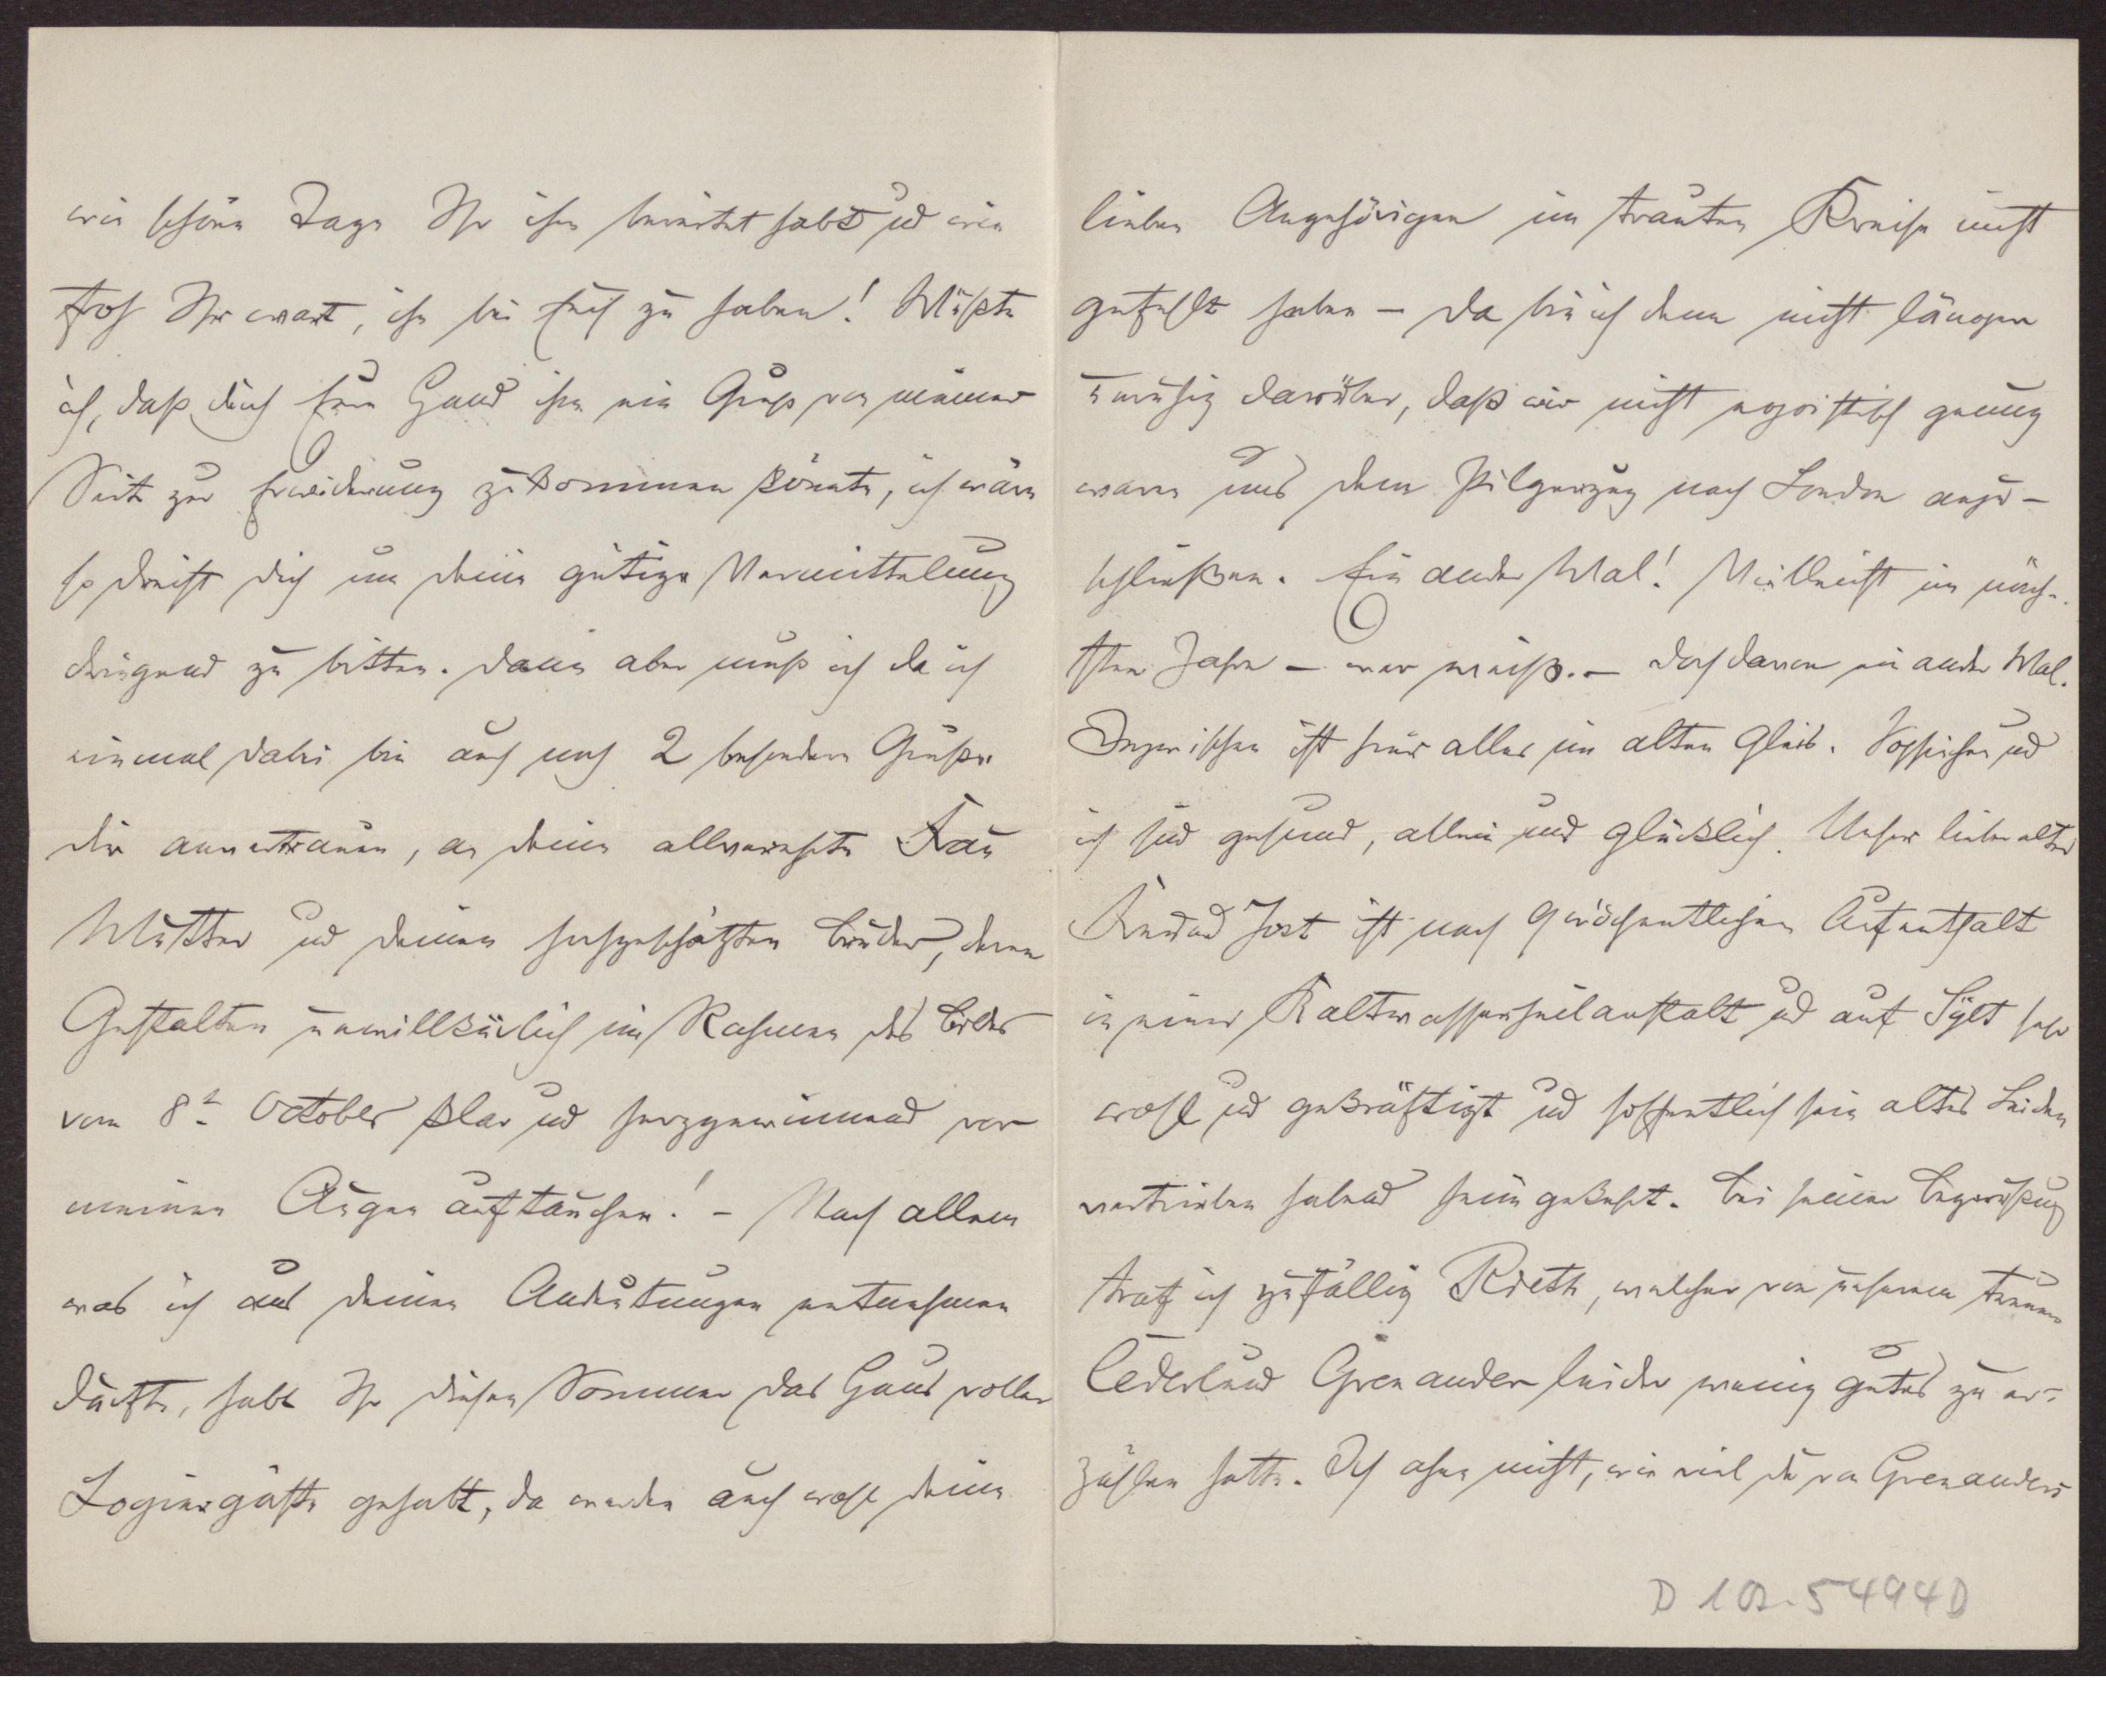 wie schöne Tage Ihr ihm bereitet habt und wie
froh Ihr wart, ihn bei Euch zu haben! Wüßte
ich, daß durch Eure Hand ihm ein Gruß von meiner
Seite zur Erwiderung zukommen könnte, ich wäre
so dreist dich um deine gütige Vermittelung
dringend zu bitten. Dann aber muß ich da ich
einmal dabei bin auch noch 2 besondere Grüße
dir anvertrauen, an deine allverehrte Frau
Mutter und deinen hochgeschätzten Bruder, deren
Gestalten unwillkürlich im Rahmen des Bildes
vom 8t. October klar und herzgewinnend vor
meinen Augen auftauchen! – Nach allem
was ich aus deinen Andeutungen entnehmen
durfte, habt Ihr diesen Sommer das Haus voller
Logiergäste gehabt, da werden auch wohl deine
lieben Angehörigen im trauten Kreise nicht
gefehlt haben – da bin ich denn nicht länger
unruhig darüber, daß wir nicht egoistisch genug
waren uns dem Pilgerzug nach London anzu-
schließen. Ein ander Mal! Vielleicht im näch-
sten Jahre – wer weiß. – Doch davon ein ander Mal.
Inzwischen ist hier alles im alten Gleis. und
ich sind gesund, allein und glücklich. Unser lieber alter
Freund Jost ist nach 9 wöchentlichem Aufenthalt
in einer Kaltwasserheilanstalt und auf Sylt sehr
wohl und gekräftigt und hoffentlich sein altes Leiden
vertrieben habend heimgekehrt. Bei seiner Begrüßung
traf ich zufällig Rieth, welcher von unserem treuen
Cederlund Grenander leider wenig gutes zu er-
zählen hatte. Ich ahne nicht, wie viel du von Grenanders
D 102.5494D